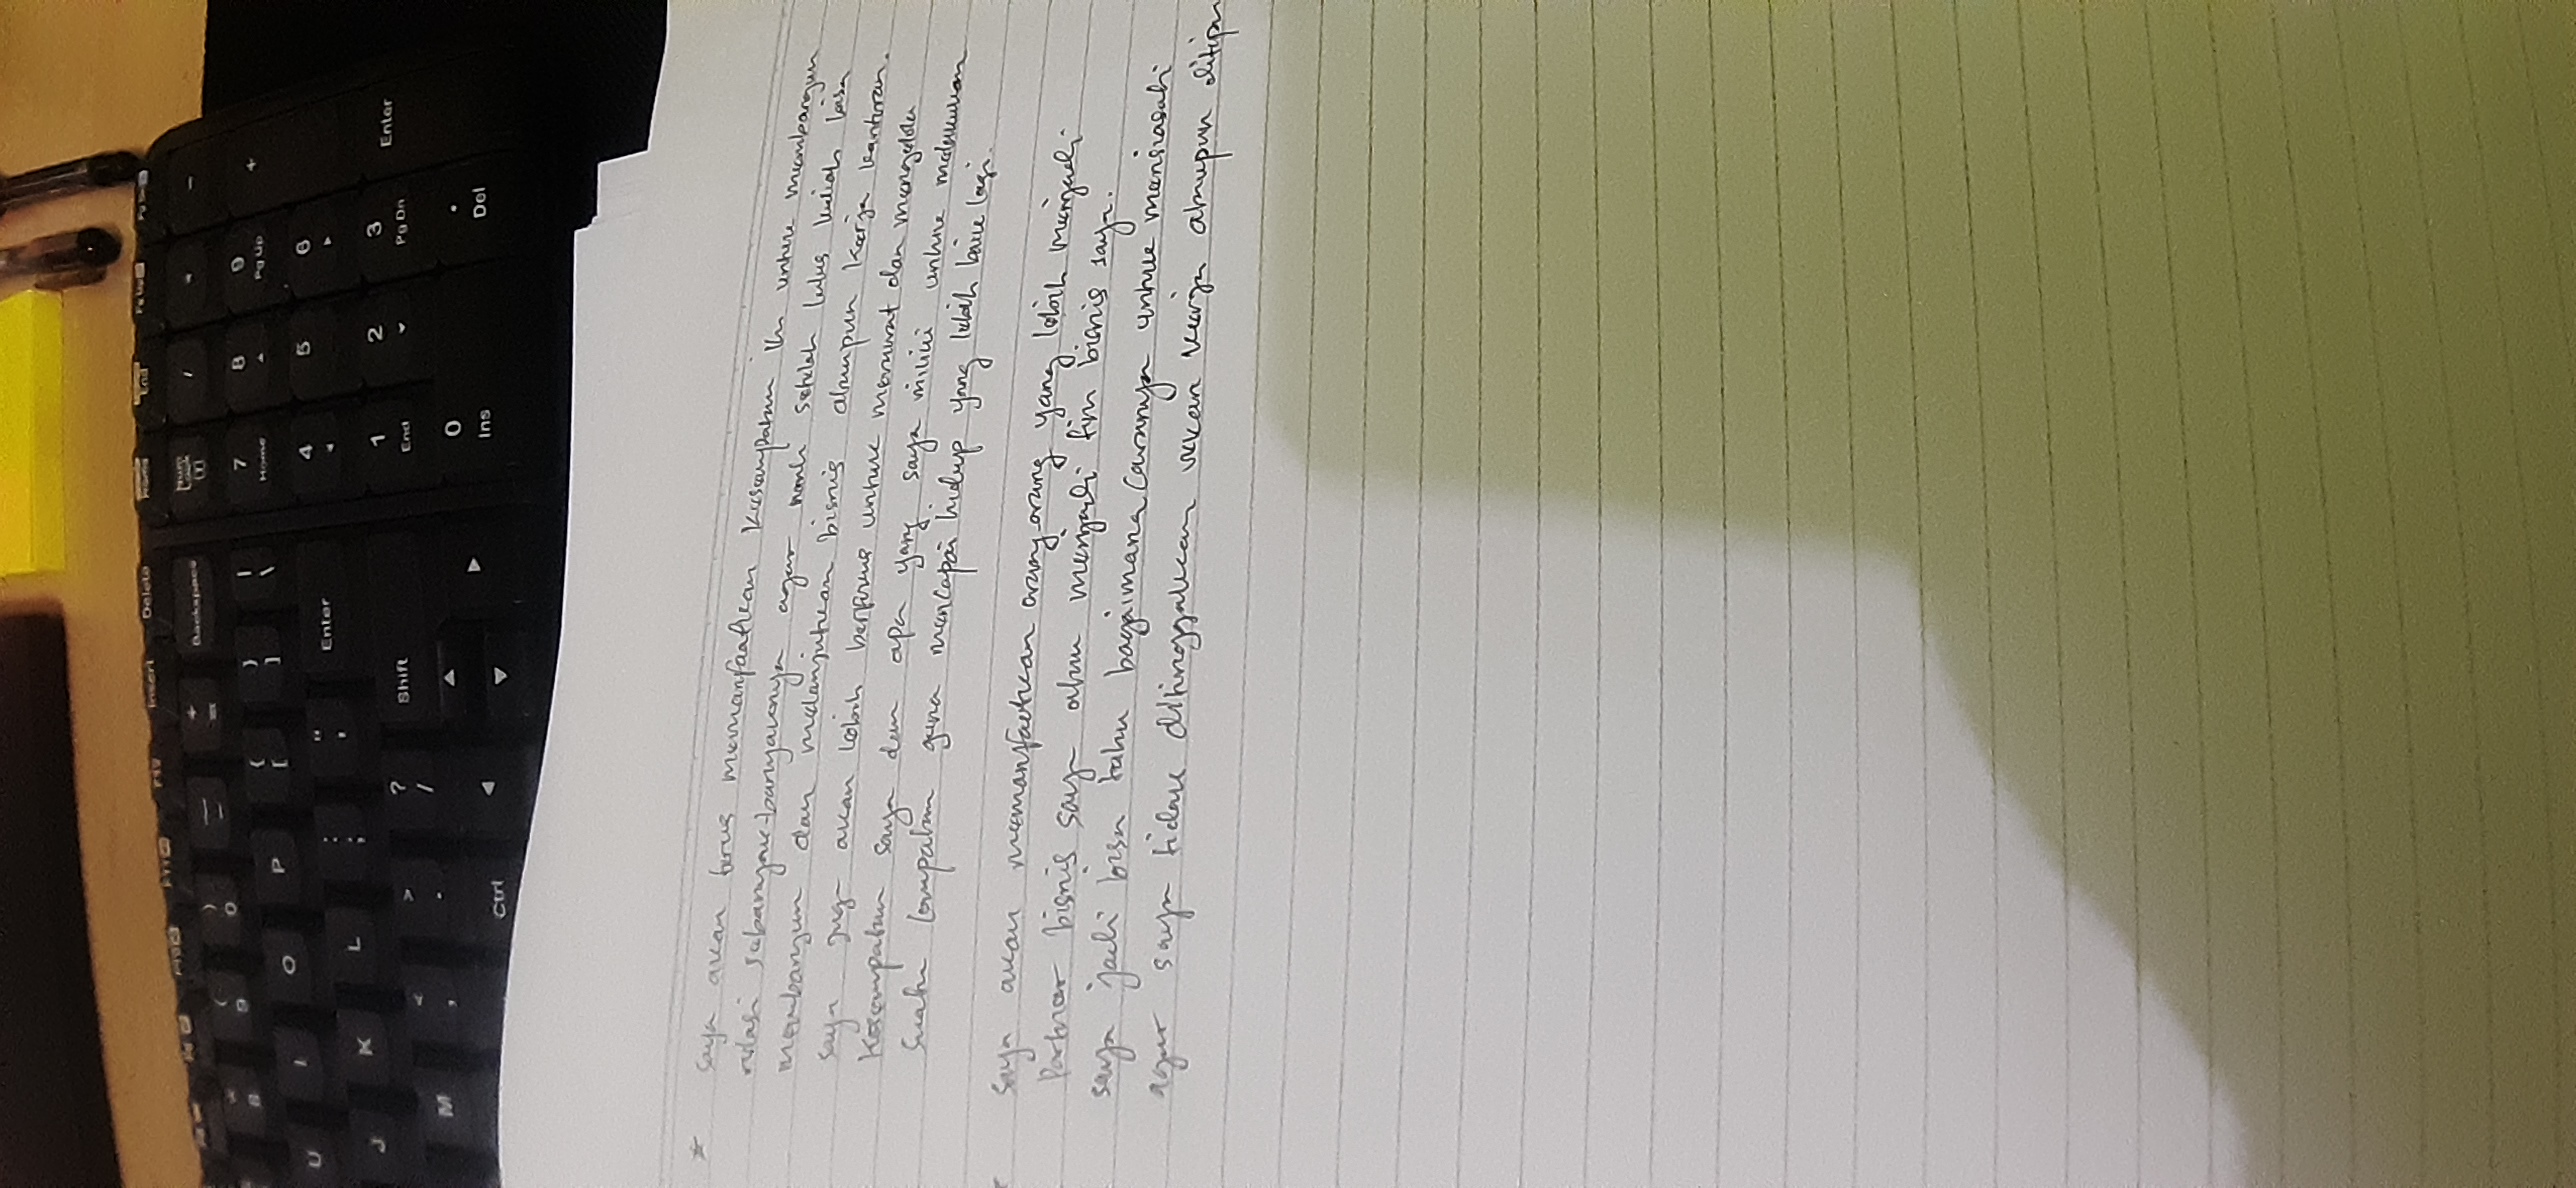 Insert Delete Home End Pg Up
* 8 ( 9 ) 0 — + = Backspace Num Lock / * -
U I O P { [ } ] | \ 7 Home 8 9 Pg Up +
J K L : ; " ' Enter 4 5 6
M < , > . ? / Shift 1 End 2 3 Pg Dn Enter
Ctrl 0 Ins . Del
* saya akan terus memanfaatkan kesempatan itu untuk membangun
relasi sebanyak-banyaknya agar nanti setelah lulus kuliah bisa
membangun dan melanjutkan bisnis ataupun kerja kantoran.
saya juga akan lebih berfikir untuk merawat dan mengelola
kesempatan saya dan apa yang saya miliki untuk melakukan
suatu lompatan guna mencapai hidup yang lebih baik lagi.
saya akan memanfaatkan orang-orang yang lebih menjadi
Partner bisnis saya atau menjadi tim bisnis saya.
saya jadi bisa tahu bagaimana caranya untuk mensiasati
agar saya tidak ditinggalkan rekan kerja ataupun ditipu